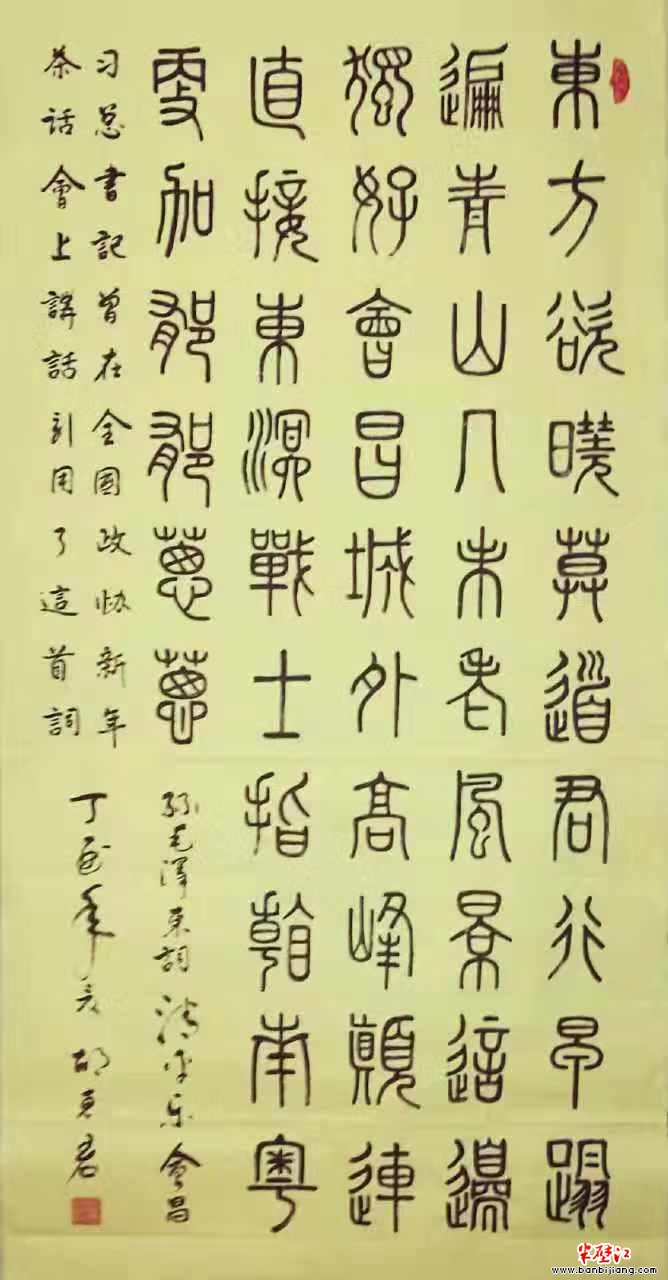 東方欲曉莫道君行早蹋
遍青山人未老風景這邊
獨好會昌城外高峰顛連
直接東溟戰士指看南粵
更加郁郁蔥蔥 毛澤東詞 清平乐 會昌
习总書記曾在全國政协新年
茶话會上講話引用了這首詞 丁酉年 胡
半壁江
www.banbijiang.com